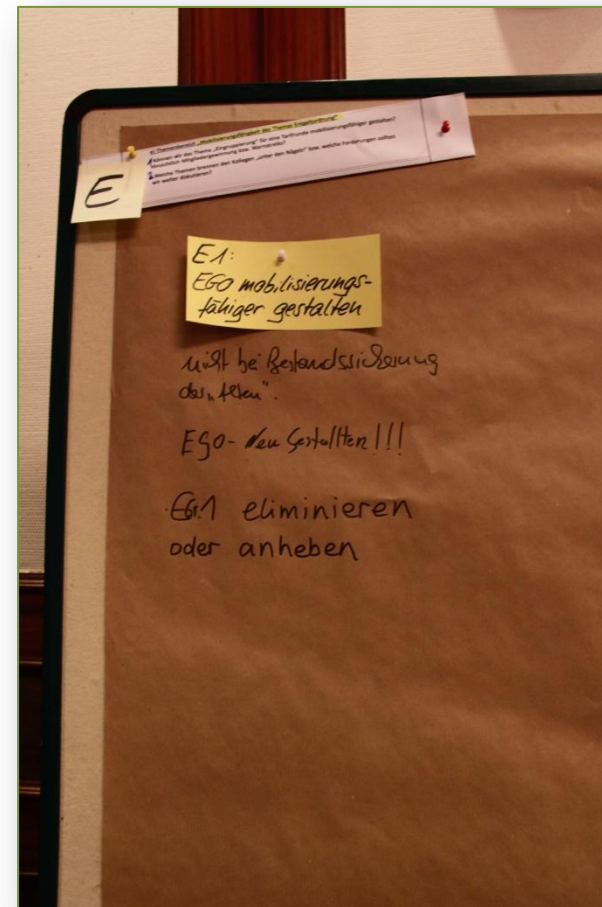 e) Themenbereich „Mobilisierungsfähigkeit des Themas Entgeltordnung"
1 Können wir das Thema „Eingruppierung" für eine Tarifrunde mobilisierungsfähiger gestalten?
hinsichtlich Mitgliedergewinnung bzw. Warnstreiks?
2 Welche Themen brennen den Kollegen „unter den Nägeln" bzw. welche Forderungen sollten
wir weiter diskutieren?
E
E1:
EGO mobilisierungs-
fähiger gestalten
nicht bei Bestandssicherung
des „Alten".
EGO- Neu Gestallten!!!
EGr.1 eliminieren
oder anheben